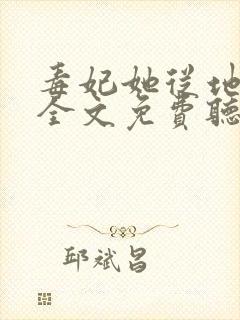 毒妃她从地
全文免費聽
邱斌昌